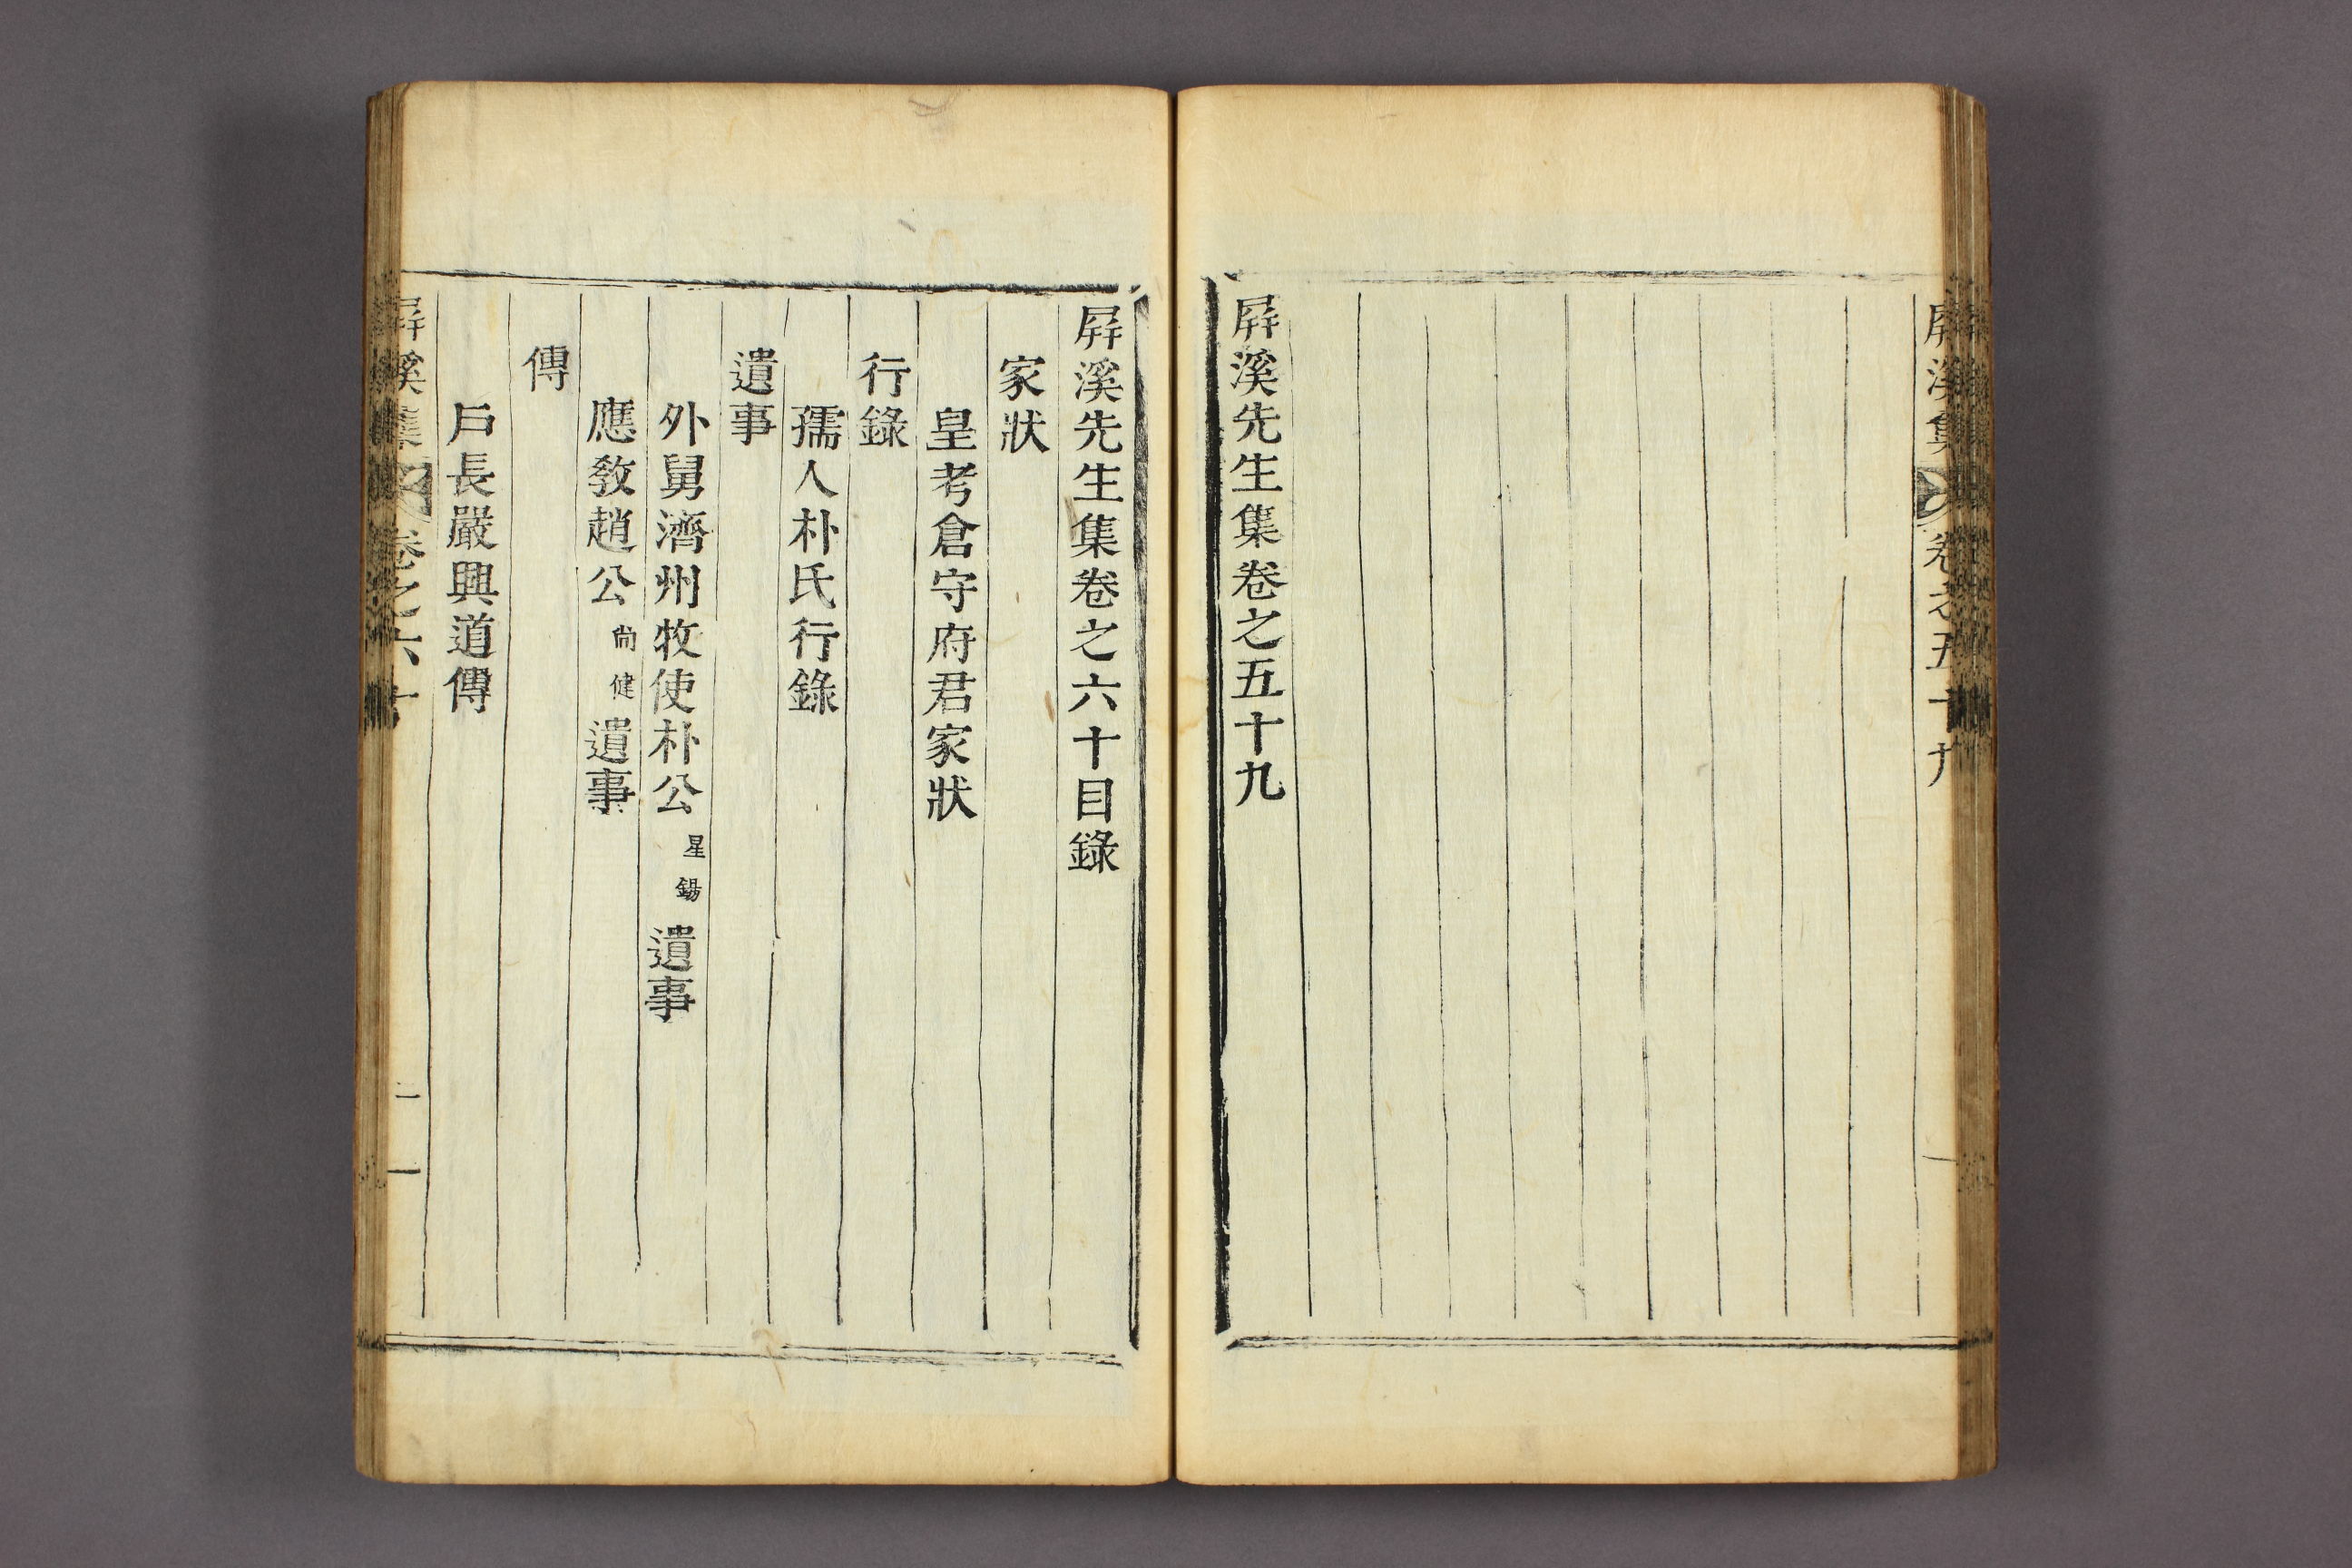 屛溪集 卷之五十九
屛溪先生集卷之五十九
屛溪先生集卷之六十目錄
家狀
皇考倉守府君家狀
行錄
孺人朴氏行錄
遺事
外舅濟州牧使朴公星錫遺事
應敎趙公尙健遺事
傳
戶長嚴興道傳
屛溪集 卷之六十